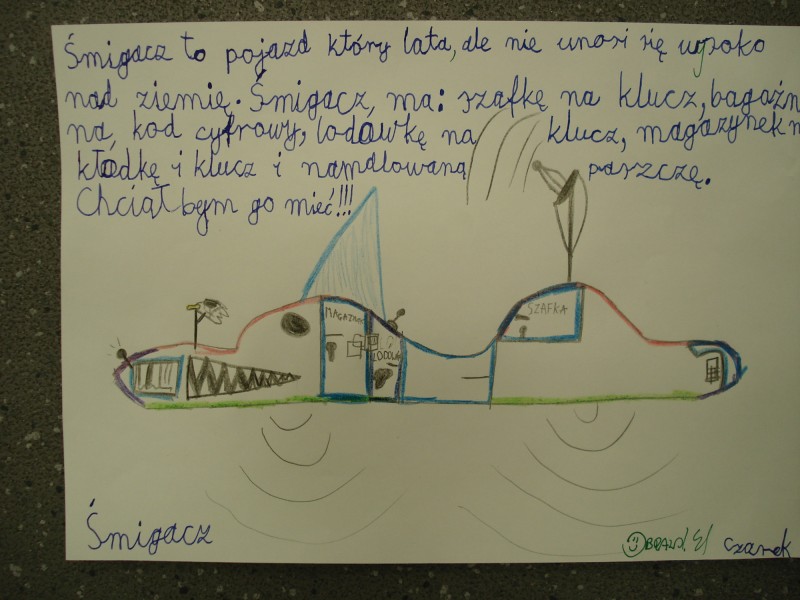 Śmigacz to pojazd który lata, ale nie unosi się wysoko
nad ziemię. Śmigacz, ma: szafkę na klucz, bagażn
na, kod cyfrowy, lodówkę na klucz, magazynek n
kłódkę i klucz i namalowaną paszczę.
Chciał bym go mieć!!!
MAGAZYN
LODÓW
SZAFKA
Śmigacz
BRAWO!
Czarek